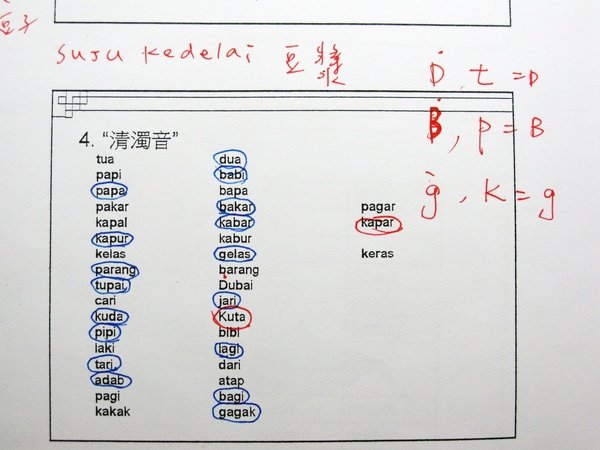 豆子
susu kedelai 豆漿
D, t = D
B, p = B
g, k = g
4. “清濁音”
tua dua
papi babi
papa bapa
pakar bakar pagar
kapal kabar kapar
kapur kabur
kelas gelas keras
parang barang
tupai Dubai
cari jari
kuda Kuta
pipi bibi
laki lagi
tari dari
adab atap
pagi bagi
kakak gagak